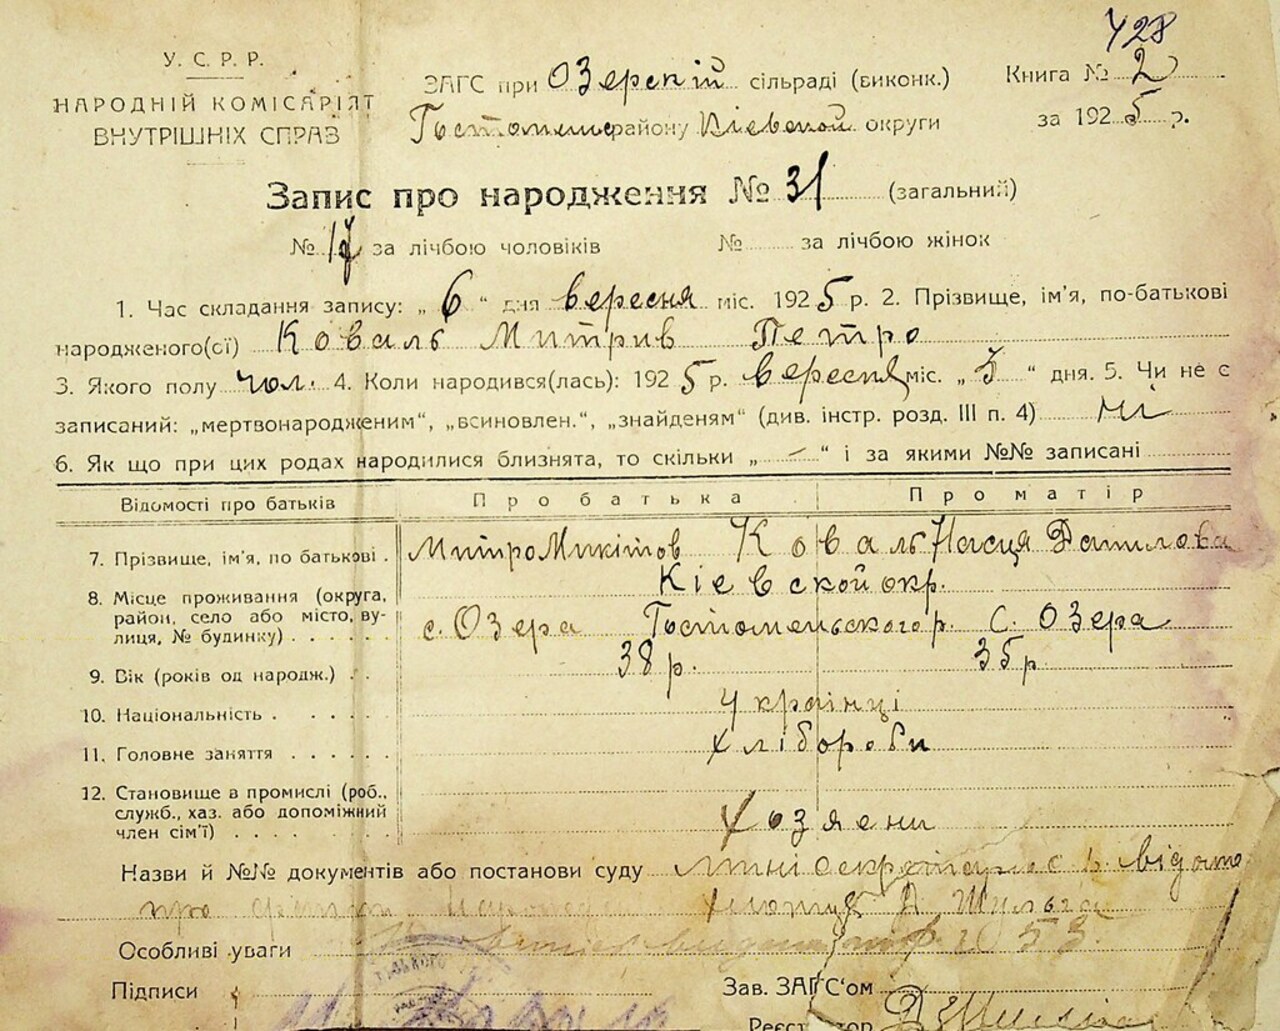 428
У. С. Р. Р.
НАРОДНІЙ КОМІСАРІЯТ
ВНУТРІШНІХ СПРАВ
ЗАГС при Озерскій сільраді (виконк.)
району Кіевской округи
Книга № 2
за 1925 р.
Запис про народження № 31 (загальний)
№ 17 за лічбою чоловіків № за лічбою жінок
1. Час складання запису: „ 6 “ дня вересня міс. 1925 р. 2. Прізвище, ім'я, по-батькові
народженого(ої) Коваль Митрив Петро
3. Якого полу чол. 4. Коли народився(лась): 1925 р. вересня міс. „ 5 “ дня. 5. Чи не є
записаний: „мертвонародженим“, „всиновлен.“, „знайденям“ (див. інстр. розд. III п. 4) ні
6. Як що при цих родах народилися близнята, то скільки „ – “ і за якими №№ записані
Відомості про батьків Про батька Про матір
7. Прізвище, ім'я, по батькові . Митро Микітов Коваль Насця Данилова
Кіевской окр.
8. Місце проживання (округа,
район, село або місто, ву-
лиця, № будинку) . . . . . . с. Озера Гостомельского р. с. Озера
9. Вік (років од народж.) . . 38 р. 35 р.
10. Національність . . . . . . Українці
11. Головне заняття . . . . . . хлібороби
12. Становище в промислі (роб.,
служб., хаз. або допоміжний
член сім'ї) . . . . . . . Хозяени
Назви й №№ документів або постанови суду
про
Особливі уваги
Підписи
Зав. ЗАГС'ом
Реєстратор